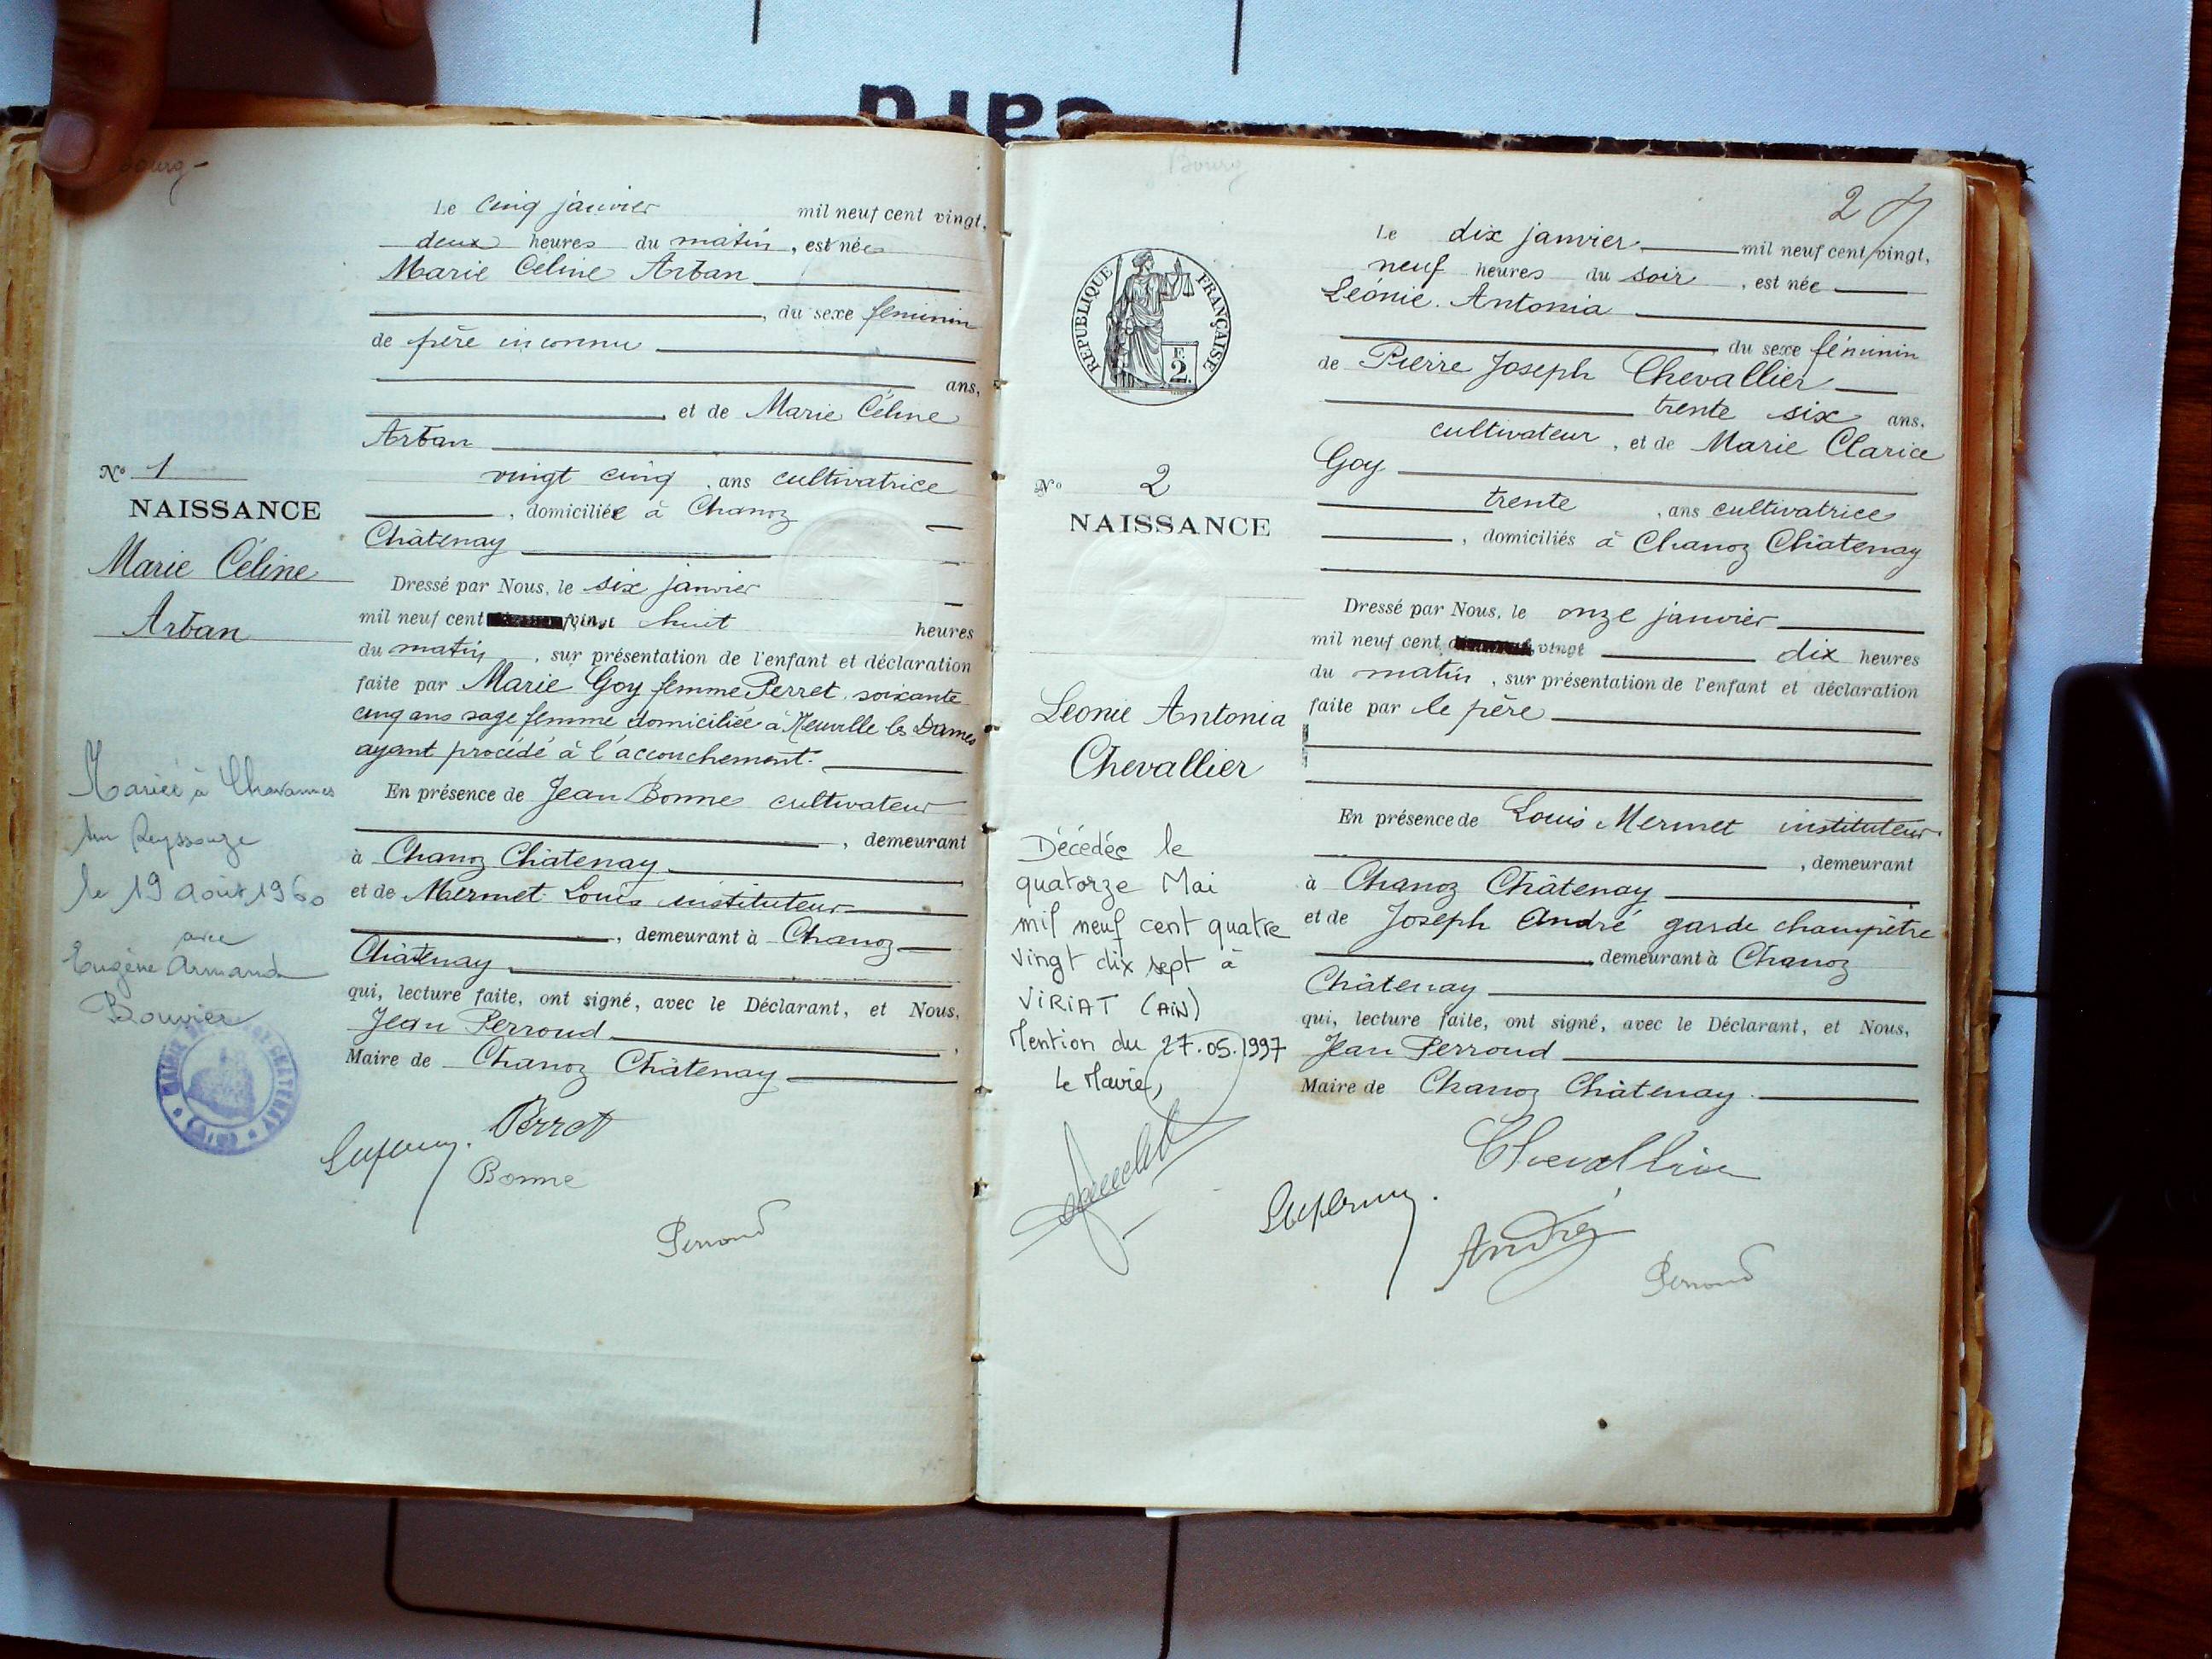 Bourg -
Le cinq janvier mil neuf cent vingt,
deux heures du matin, est née
Marie Céline Arban
, du sexe féminin
de père inconnu
ans,
et de Marie Céline
Arban
vingt cinq, ans cultivatrice
, domiciliée à Chanoz
Châtenay
Dressé par Nous, le six janvier
mil neuf cent vingt huit heures
du matin, sur présentation de l'enfant et déclaration
faite par Marie Goy femme Perret, soixante
cinq ans sage femme domiciliée à Neuville les Dames
ayant procédé à l'accouchement.
En présence de Jean Bonne cultivateur
, demeurant
à Chanoz Châtenay
et de Mermet Louis instituteur
, demeurant à Chanoz
Châtenay
qui, lecture faite, ont signé, avec le Déclarant, et Nous,
Jean Perroud
Maire de Chanoz Châtenay
Perret
Bonne
Perroud
No 1
NAISSANCE
Marie Céline
Arban
Mariée à Chavannes
sur Reyssouze
le 19 août 1960
avec
Eugène Armand
Bouvier
Bourg
2
RÉPUBLIQUE FRANÇAISE
2
Le dix janvier mil neuf cent vingt,
neuf heures du soir, est née
Léonie. Antonia
du sexe féminin
de Pierre Joseph Chevallier
trente six ans,
cultivateur, et de Marie Clarice
Goy
trente, ans cultivatrice
, domiciliés à Chanoz Châtenay
Dressé par Nous, le onze janvier
mil neuf cent vingt dix heures
du matin, sur présentation de l'enfant et déclaration
faite par le père
En présence de Louis Mermet instituteur
, demeurant
à Chanoz Châtenay
et de Joseph André garde champêtre
demeurant à Chanoz
Châtenay
qui, lecture faite, ont signé, avec le Déclarant, et Nous,
Jean Perroud
Maire de Chanoz Châtenay
Chevallier
André
Perroud
No 2
NAISSANCE
Léonie Antonia
Chevallier
Décédée le
quatorze Mai
mil neuf cent quatre
vingt dix sept à
VIRIAT (AIN)
Mention du 27.05.1997
Le Maire,